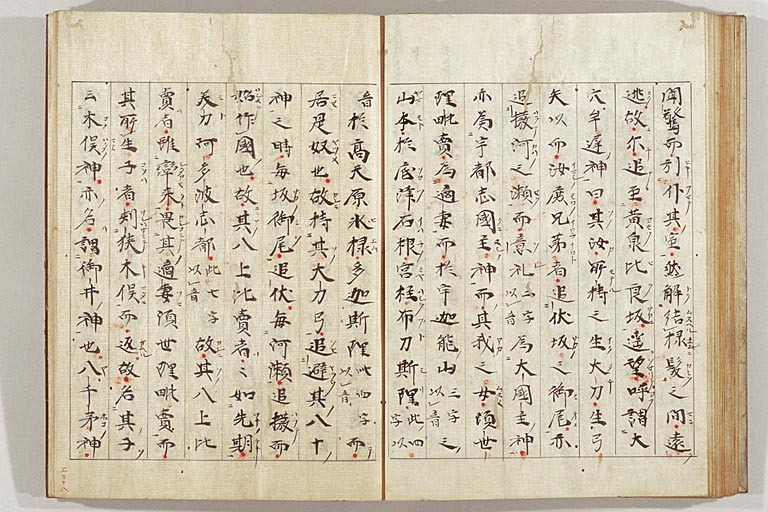 聞驚而引仆其室然解結椽髪之間遠
逃故尓追至黄泉比良坂遥望呼謂大
穴牟遅神曰其汝所持之生大刀生弓
矢以而汝庶兄弟者追伏坂之御尾亦
追撥河之瀬而意礼二字以音為大國主神
亦為宇都志國主神而其我之女須世
理毗賣為適妻而於宇迦能山三字以音之
山本於底津石根宮柱布刀斯理此四字以
音於髙天原氷椽多迦斯理此四字以音而
居是奴也故持其大刀弓追避其八十
神之時毎坂御尾追伏毎河瀬追撥而
始作國也故其八上比賣者之如先期
美刀阿多波志都此七字以音故其八上比
賣者雖率来畏其適妻須世理毗賣而
其所生子者刺挟木俣而返故名其子
云木俣神亦名謂御井神也八千矛神